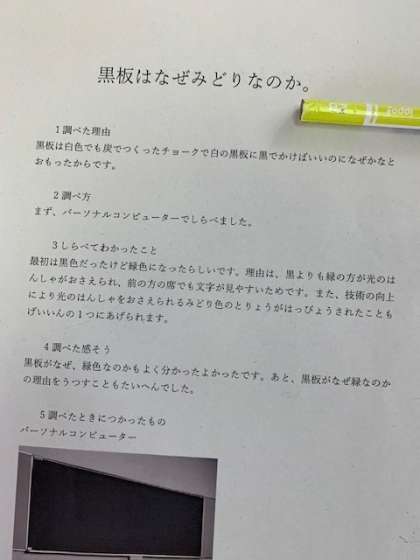 黒板はなぜみどりなのか。
1調べた理由
黒板は白色でも炭でつくったチョークで白の黒板に黒でかけばいいのになぜかなと
おもったからです。
2調べ方
まず、パーソナルコンピューターでしらべました。
3しらべてわかったこと
最初は黒色だったけど緑色になったらしいです。理由は、黒よりも緑の方が光のは
んしゃがおさえられ、前の方の席でも文字が見やすいためです。また、技術の向上
により光のはんしゃをおさえられるみどり色のとりょうがはっぴょうされたことも
げいいんの1つにあげられます。
4調べた感そう
黒板がなぜ、緑色なのかもよく分かったよかったです。あと、黒板がなぜ緑なのか
の理由をうつすこともたいへんでした。
5調べたときにつかったもの
パーソナルコンピューター